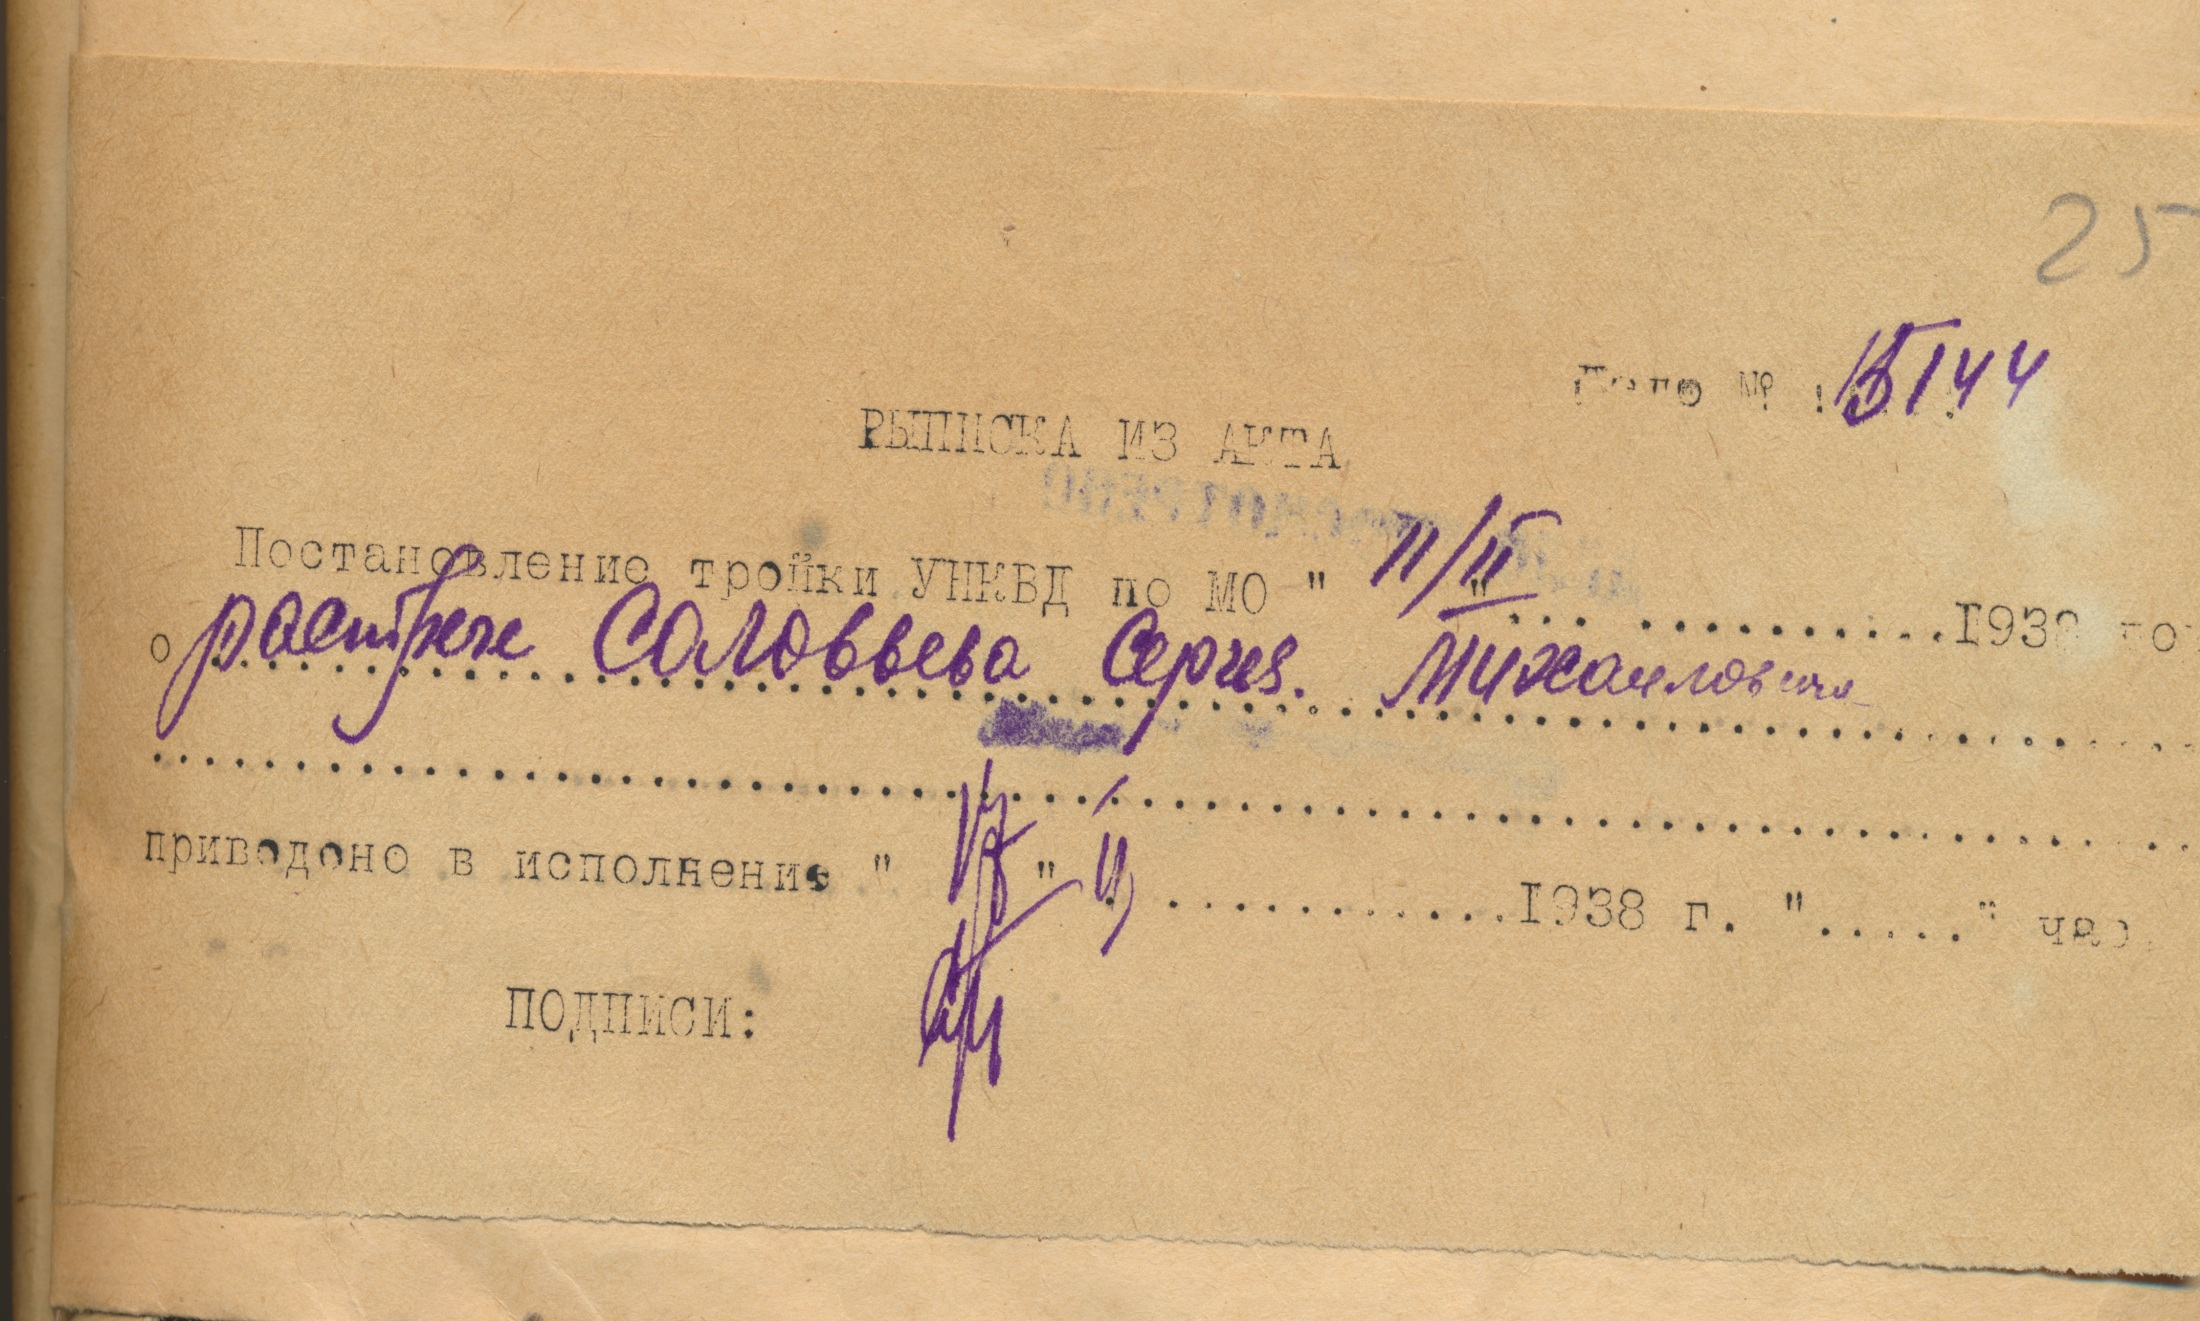 25
Дело № 15144
ВЫПИСКА ИЗ АКТА
Постановление тройки УНКВД по МО " 11/II " ... ..........1938 г.
о расстреле Соловьева Сергея Михайловича
приведено в исполнение " " ............1938 г. "....." час.
ПОДПИСИ: